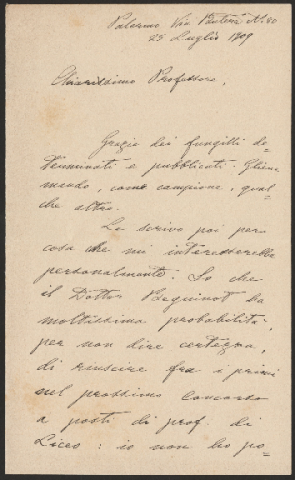 Palermo Via Pantera N. 80
25 Luglio 1909
Chiarissimo Professore,
Grazie dei funghitti de-
terminati e pubblicati. Gliene
mando, come campione, qual-
che altro.
Le scrivo poi per
cosa che mi interesserebbe
personalmente. So che
il Dottor Beguinot ha
moltissima probabilità,
per non dire certezza,
di riuscire fra i primi
nel prossimo concorso
a posti di prof. di
Liceo: io non ho po-